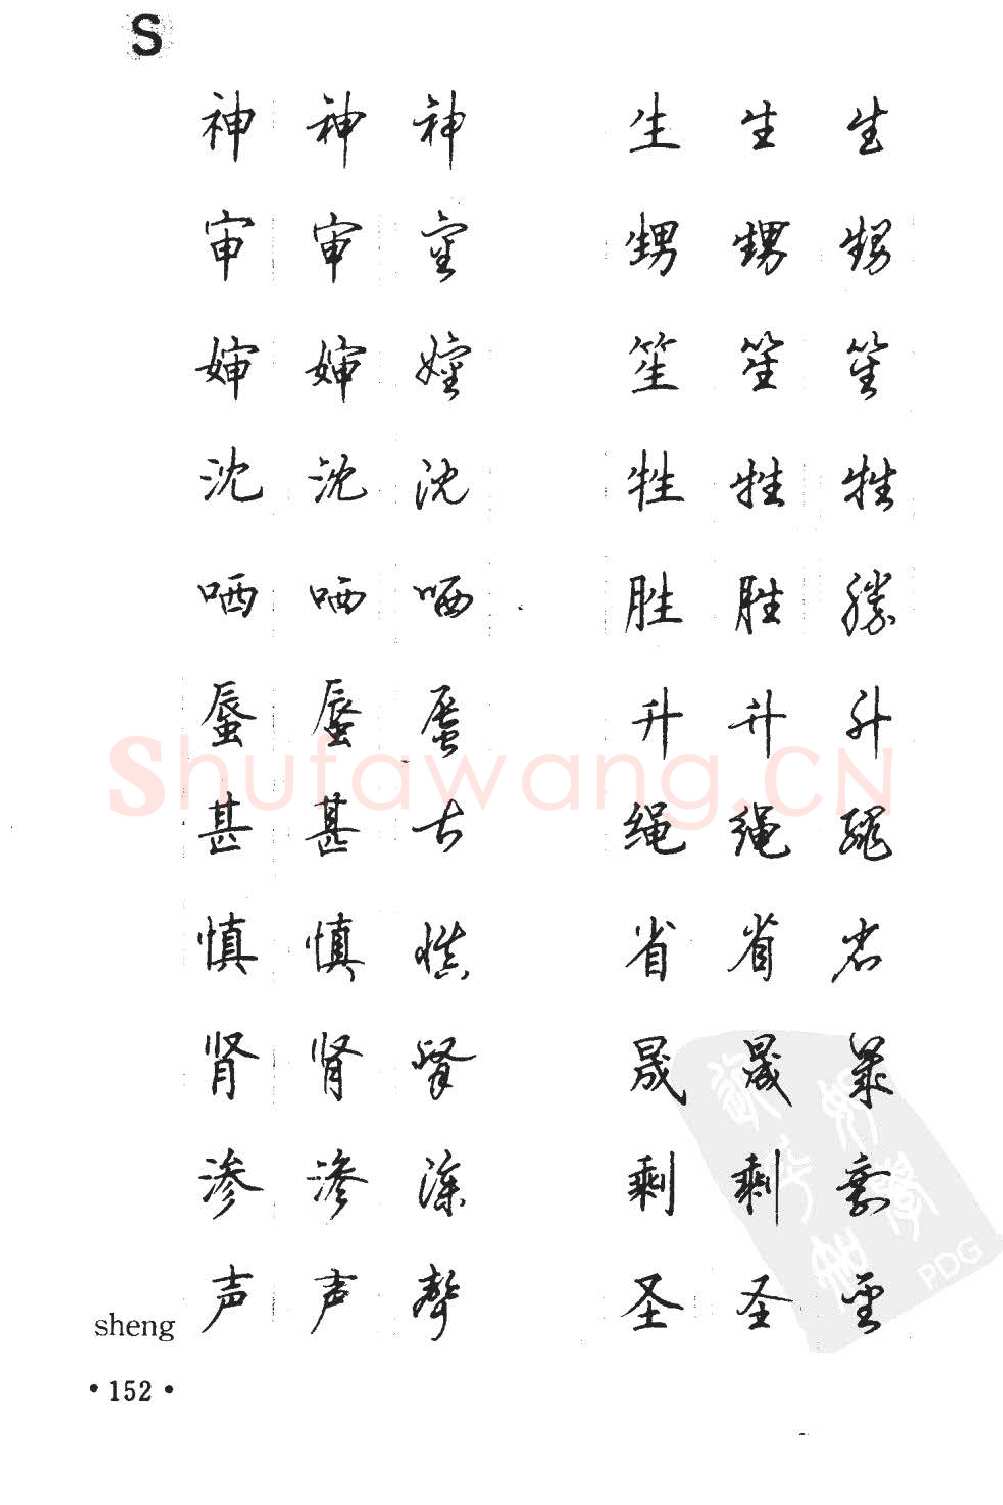 S
神 神 神
审 审 审
婶 婶 婶
沈 沈 沈
哂 哂 哂
蜃 蜃 蜃
甚 甚 甚
慎 慎 慎
肾 肾 腎
渗 渗 渗
sheng 声 声 聲
生 生 生
甥 甥 甥
笙 笙 笙
牲 牲 牲
胜 胜 勝
升 升 升
绳 绳 绳
省 省 省
晟 晟 晟
剩 剩 剩
圣 圣 圣
• 152 •
Shufawang.CN
PDG